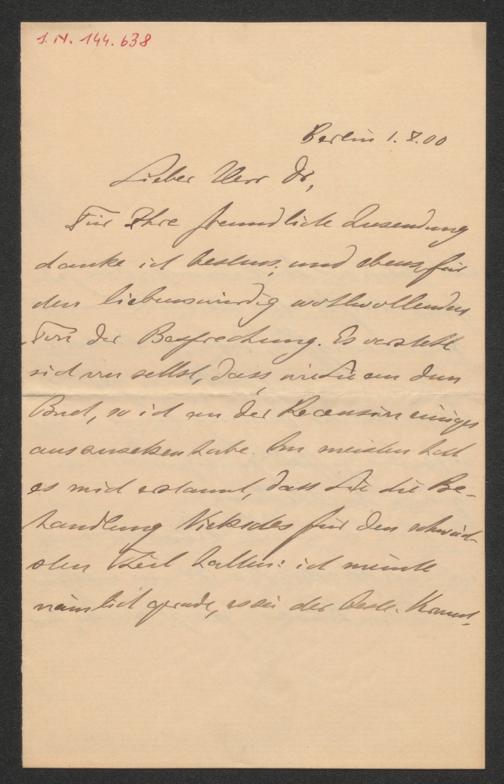 J.N. 144.638
Berlin 1.8.00
Lieber Herr Dr,
Für Ihre freundliche Zusendung
danke ich bestens, und ebenso für
den liebenswürdig wohlwollenden
Ton der Besprechung. Es versteht
sich von selbst, dass, wie Sie an dem
Buch, so ich an der Recension einiges
auszusetzen habe. Am meisten hat
es mich erstaunt, dass Sie die Be-
handlung für den schwäch-
sten Theil halten: ich meinte
nämlich gerade, es sei der beste.